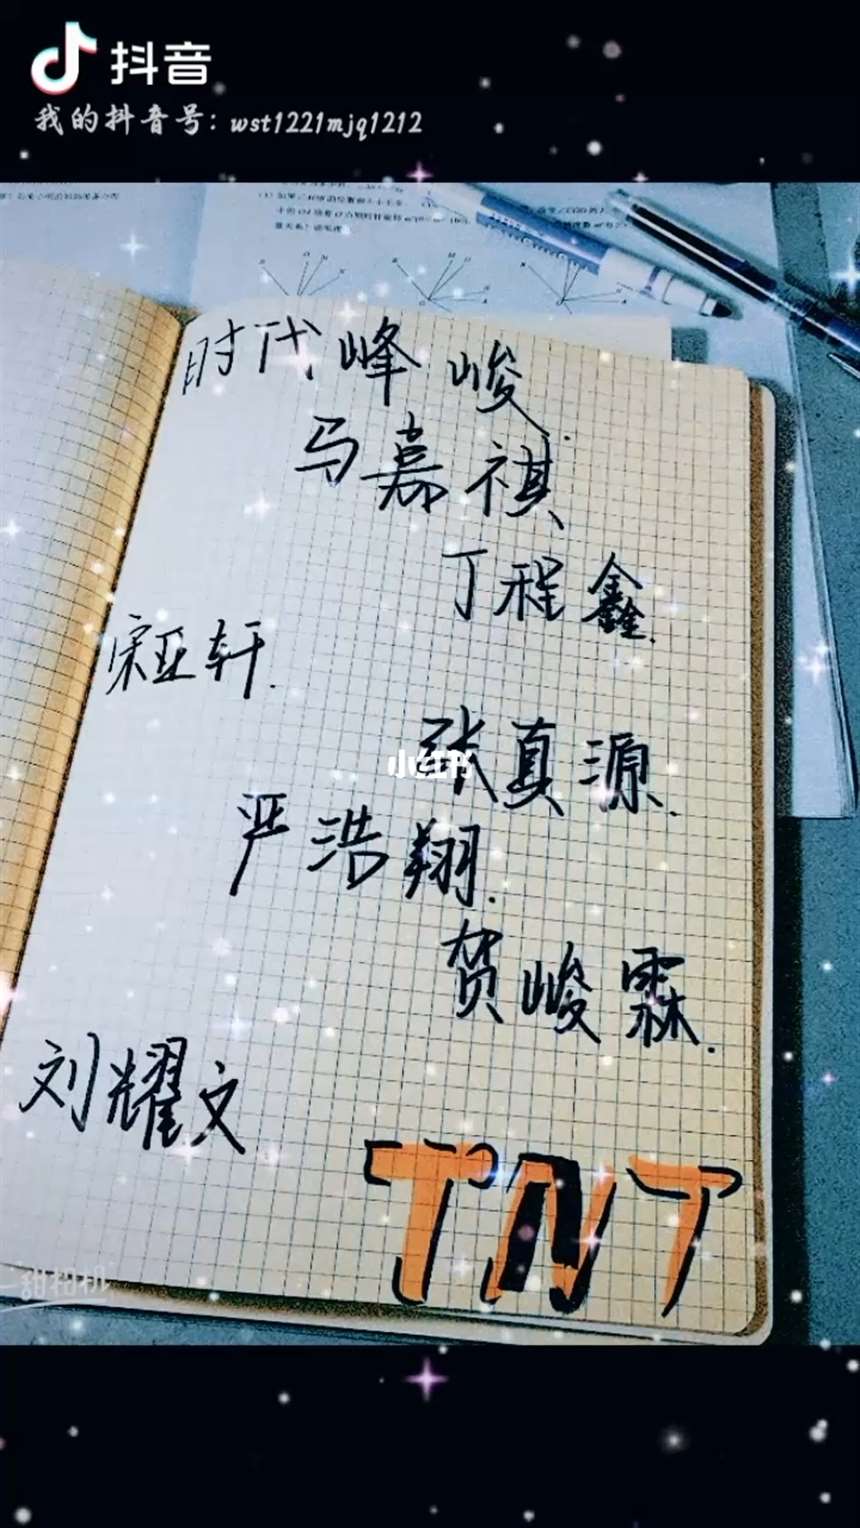 抖音
我的抖音号: wst1221mjq1212
时代峰峻
马嘉祺
丁程鑫
宋亚轩
张真源
小红书
严浩翔
贺峻霖
刘耀文
TNT
甜相机